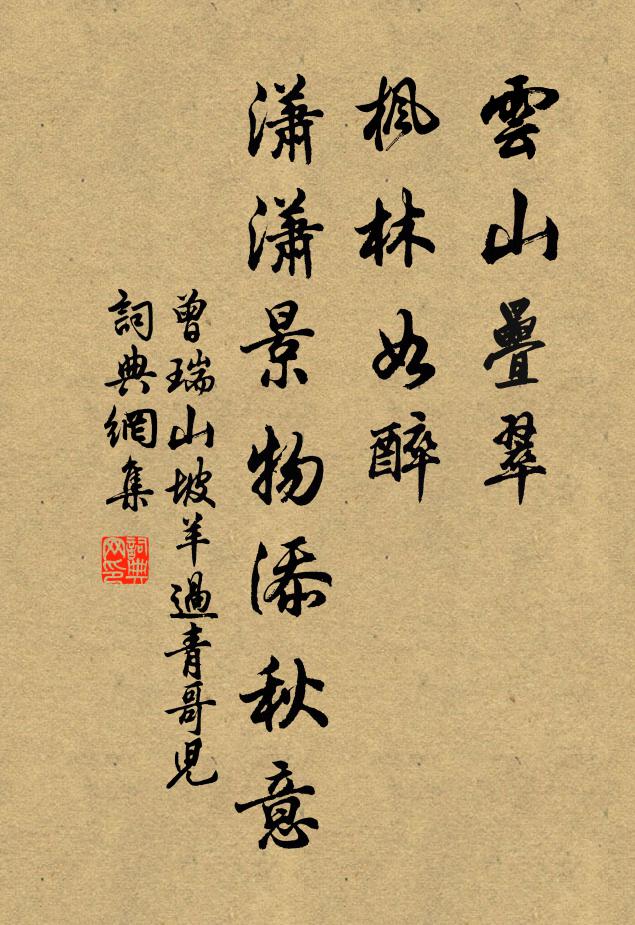 雲山疊翠
楓林如醉
瀟瀟景物添秋意
曾瑞山坡羊過青哥児
詞典網集
詞典网印